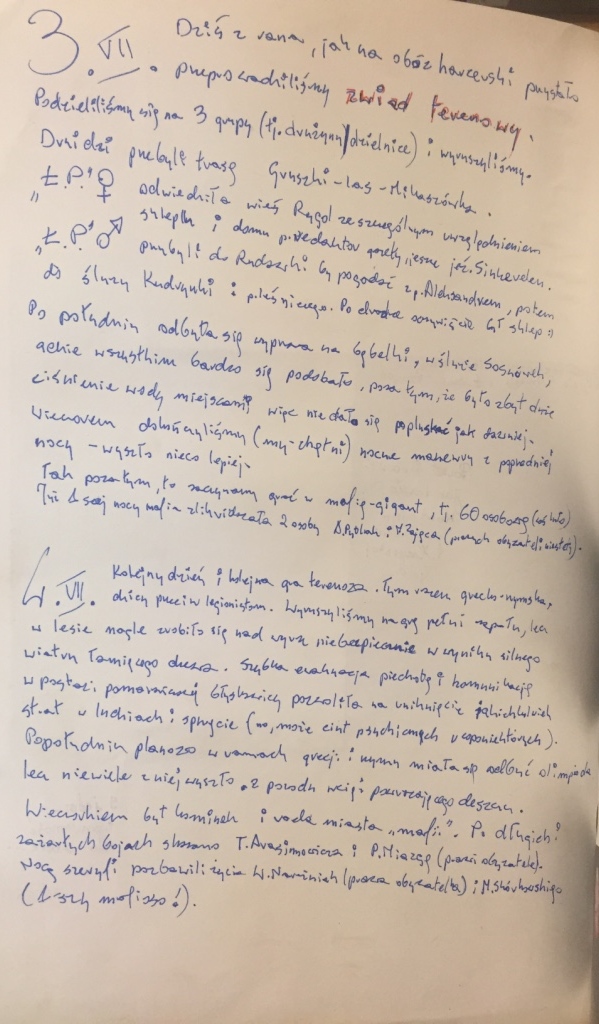 3.VII. Dziś z rana, jak na obóz harcerski przystało
przeprowadziliśmy zwiad terenowy.
Podzieliliśmy się na 3 grupy (tj. drużyny/dzielnice) i wyruszyliśmy.
Druidzi przebyli trasę Gruszki - Las - Mikaszówka.
"Ł.P."♀ odwiedziła wieś Rygol ze szczególnym uwzględnieniem
sklepiku i domu p. redaktor
"Ł.P."♂ przybyli do Rudawki by pogadać z p. Aleksandrem, potem
do śluzy Kudrynki i p. leśniczego. Po drodze oczywiście był sklep :)
Po południu odbyła się wyprawa na bąbelki, w śluzie Sosnówek,
gdzie wszystkim bardzo się podobało, poza tym, że było zbyt duże
ciśnienie wody miejscami więc nie dało się popluskać jak dawniej.
Wieczorem dokończyliśmy (my-chętni) nocne manewry z poprzedniej
nocy - wyszło nieco lepiej.
Tak poza tym, to zaczynamy grać w mafię-gigant, tj. 60 osobową (coś koło)
Już 1-szej nocy mafia zlikwidowała 2 osoby i Zająca (prawych obywateli miasta).
4.VII. Kolejny dzień i kolejna gra terenowa. Tym razem grecko-rzymska,
dzicy przeciw legionistom. Wyruszyliśmy na grę pełni zapału, lecz
w lesie nagle zrobiło się nad wyraz niebezpiecznie w wyniku silnego
wiatru łamiącego drzewa. Szybka ewakuacja piechotą i komunikacją
w postaci pomarańczowej błyskawicy pozwoliła na uniknięcie jakichkolwiek
strat w ludziach i sprzęcie (no, może ciut psychicznych u co poniektórych).
Popołudniu planowo w ramach grecji i rzymu miała się odbyć olimpiada
lecz niewiele z niej wyszło, z powodu wciąż powracającego deszczu.
Wieczorkiem był kominek i rada miasta "mafii". Po długich i
zażartych bojach skazano T. Arasimowicza i P. Miazgę (prawi obywatele).
Nocą szeryfi pozbawili życia W. (prawa obywatelka) i M. Skórkowskiego
(1-szy mafioso!).